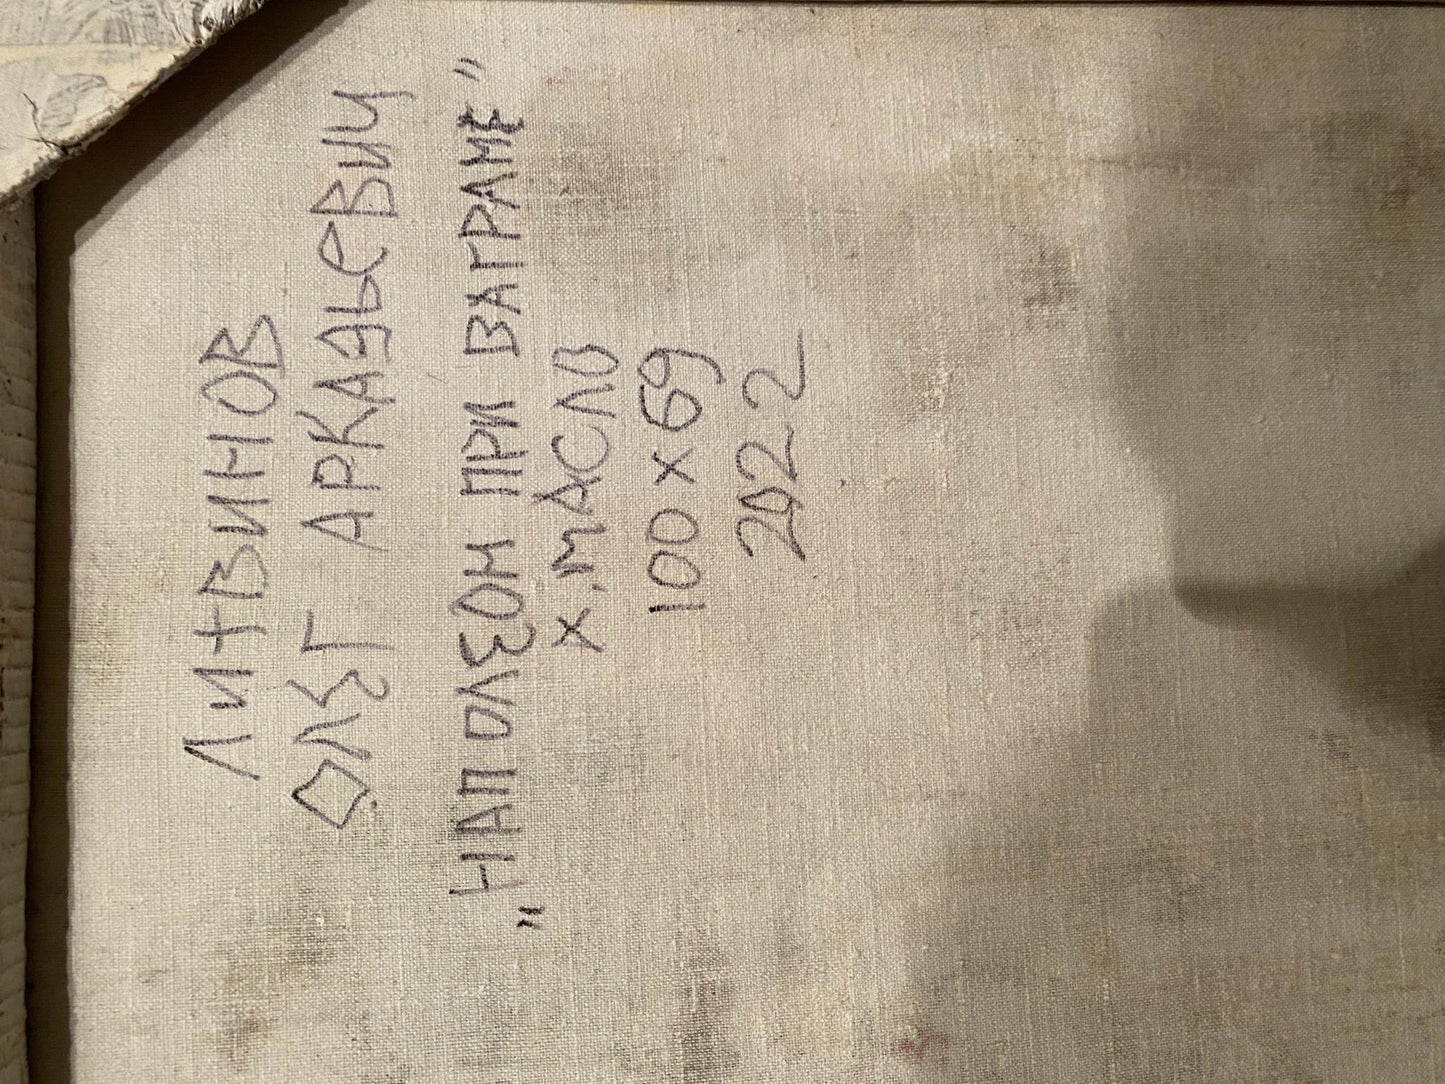 ЛИТВИНОВ
ОЛЕГ АРКАДЬЕВИЧ
„НАПОЛЕОН ПРИ ВАГРАМЕ”
х. МАСЛО
100 х 69
2022